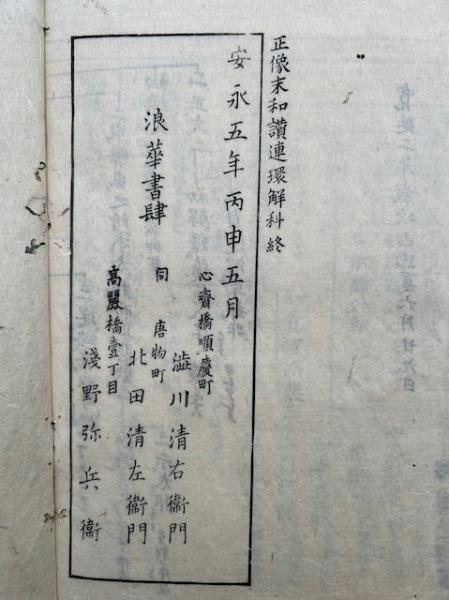 正像末和讃連環解科終
安永五年丙申五月
浪華書肆
心齋橋順慶町
澁川清右衞門
同 唐物町
北田清左衞門
高麗橋壹丁目
淺野弥兵衞